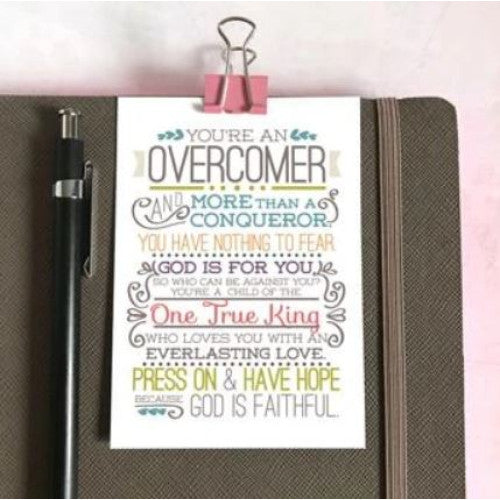 YOU'RE AN
OVERCOMER
AND MORE THAN A
CONQUEROR.
YOU HAVE NOTHING TO FEAR.
GOD IS FOR YOU,
SO WHO CAN BE AGAINST YOU?
YOU'RE A CHILD OF THE
One True King
WHO LOVES YOU WITH AN
EVERLASTING LOVE.
PRESS ON & HAVE HOPE
BECAUSE GOD IS FAITHFUL.